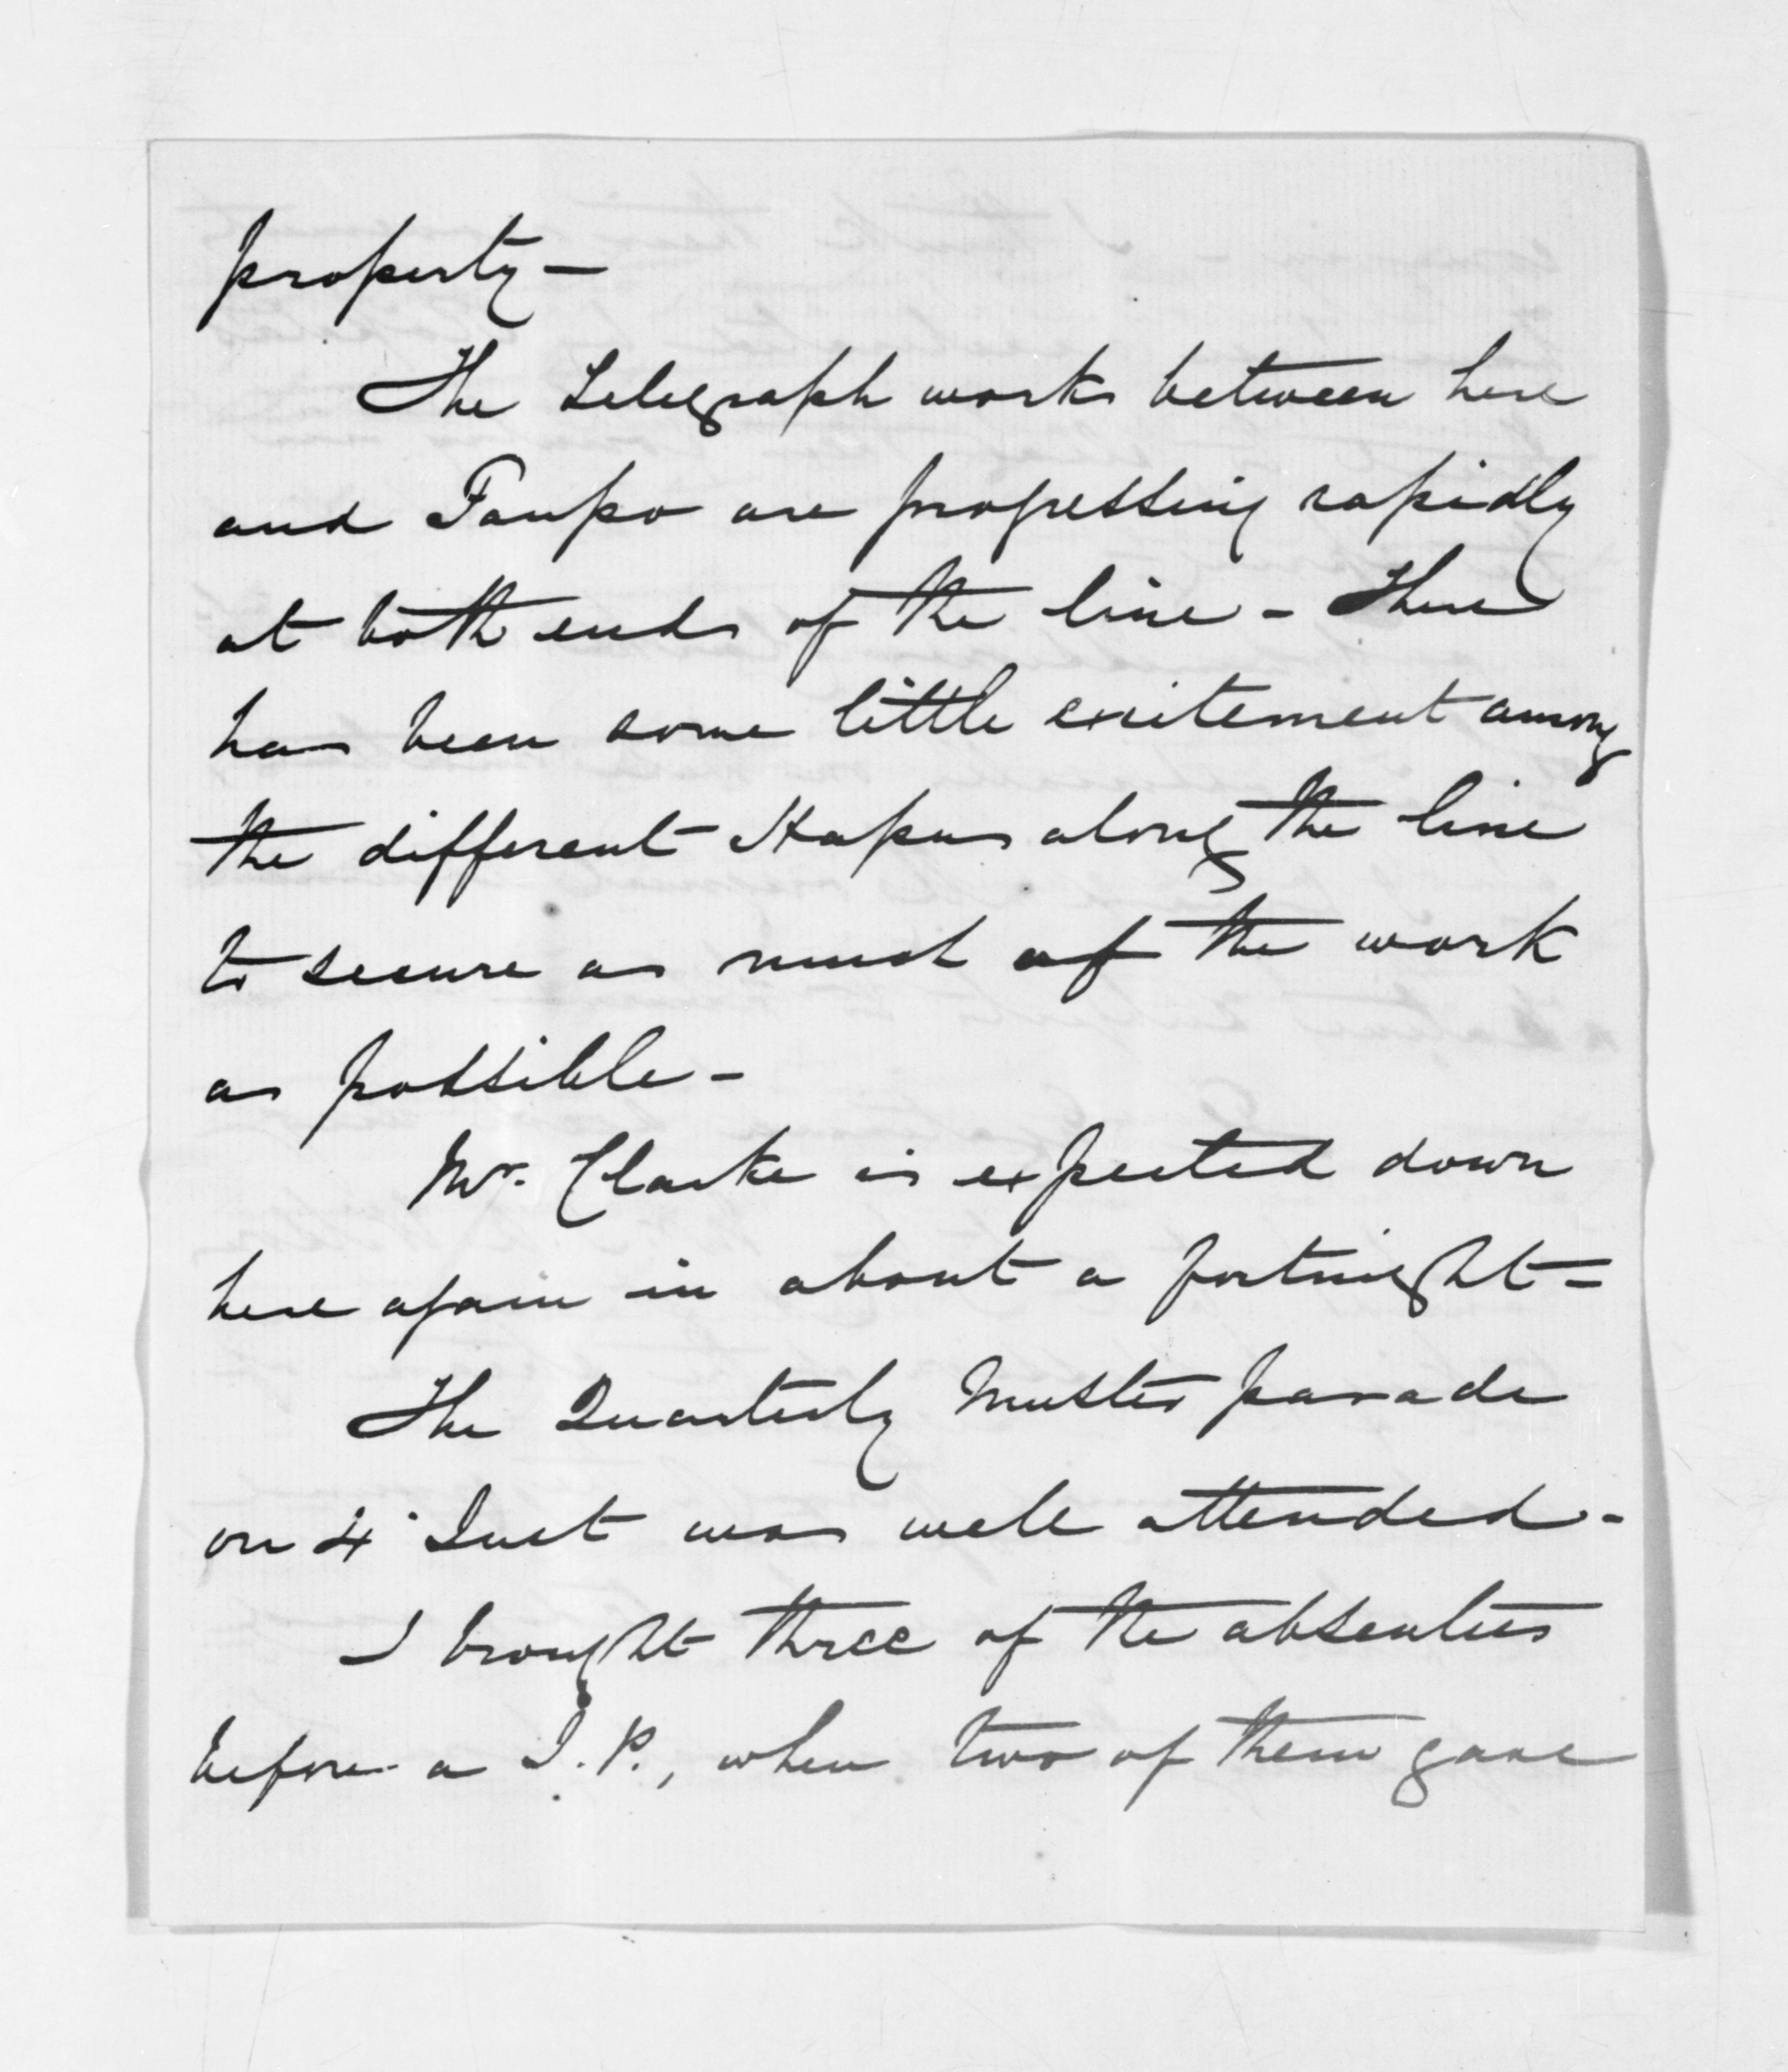 property –
The Telegraph works between here
and Taupo are progressing rapidly
at both ends of the line – There
has been some little excitement among
the different Hapus along the line
to secure as much of the work
as possible –
Mr. Clarke is expected down
here again in about a fortnight –
The Quarterly Muster parade
on 4 Inst was well attended –
I brought three of the absentees
before a J.P., when two of them gave